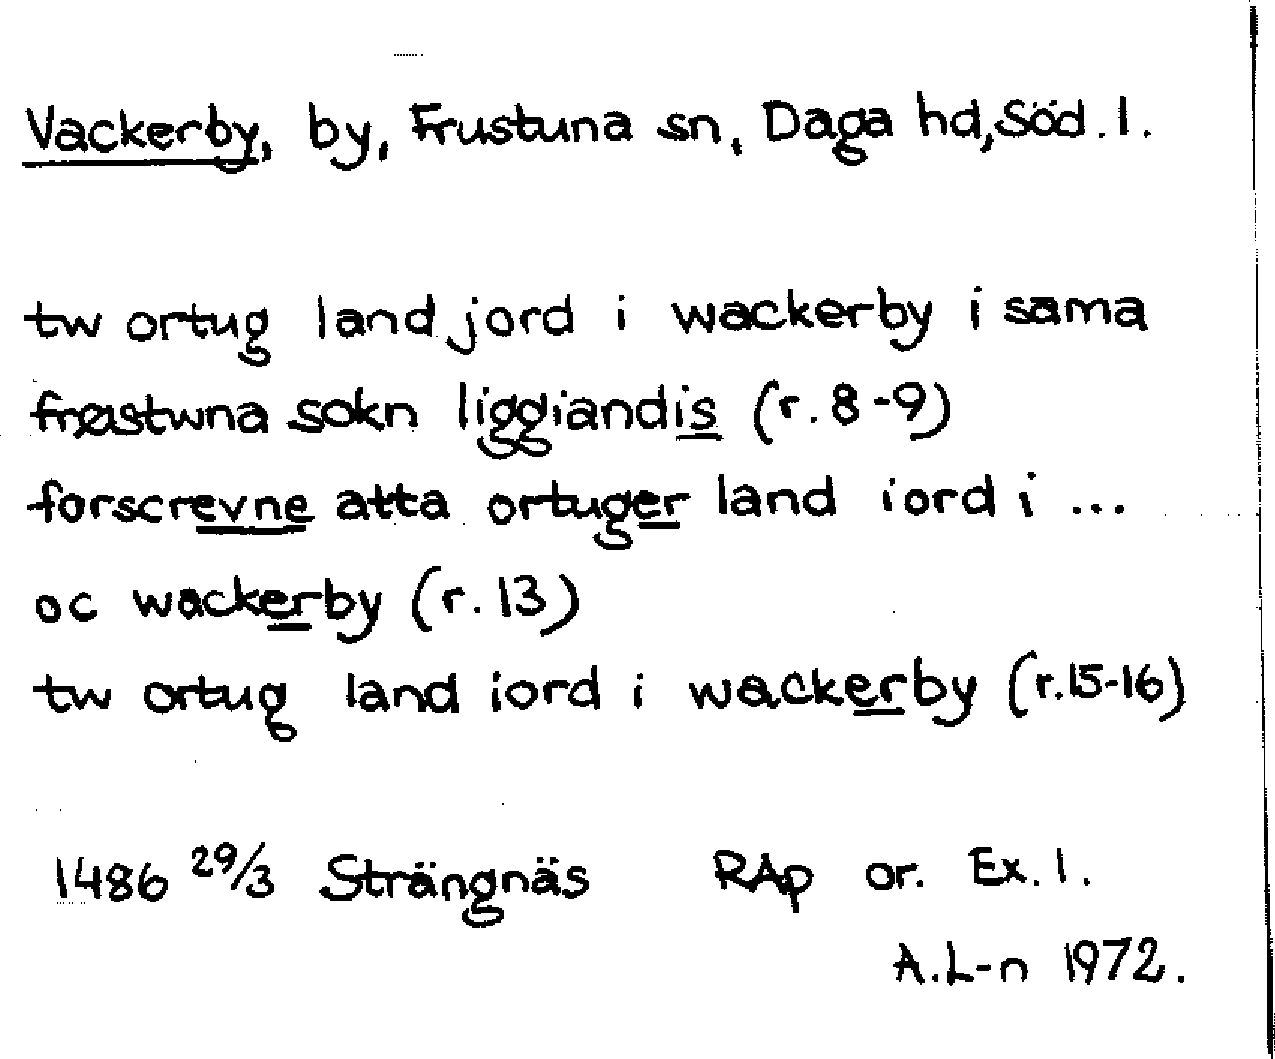 Vackerby, by, Frustuna sn, Daga hd, Söd. l.
tw ortug land jord i wackerby i sama
frøstwna sokn liggiandis (r. 8-9)
forscrevne atta ortuger land iord i ...
oc wackerby (r. 13)
tw ortug land iord i wackerby (r. 15-16)
1486 29/3 Strängnäs RAp or. Ex. 1.
A. L-n 1972.